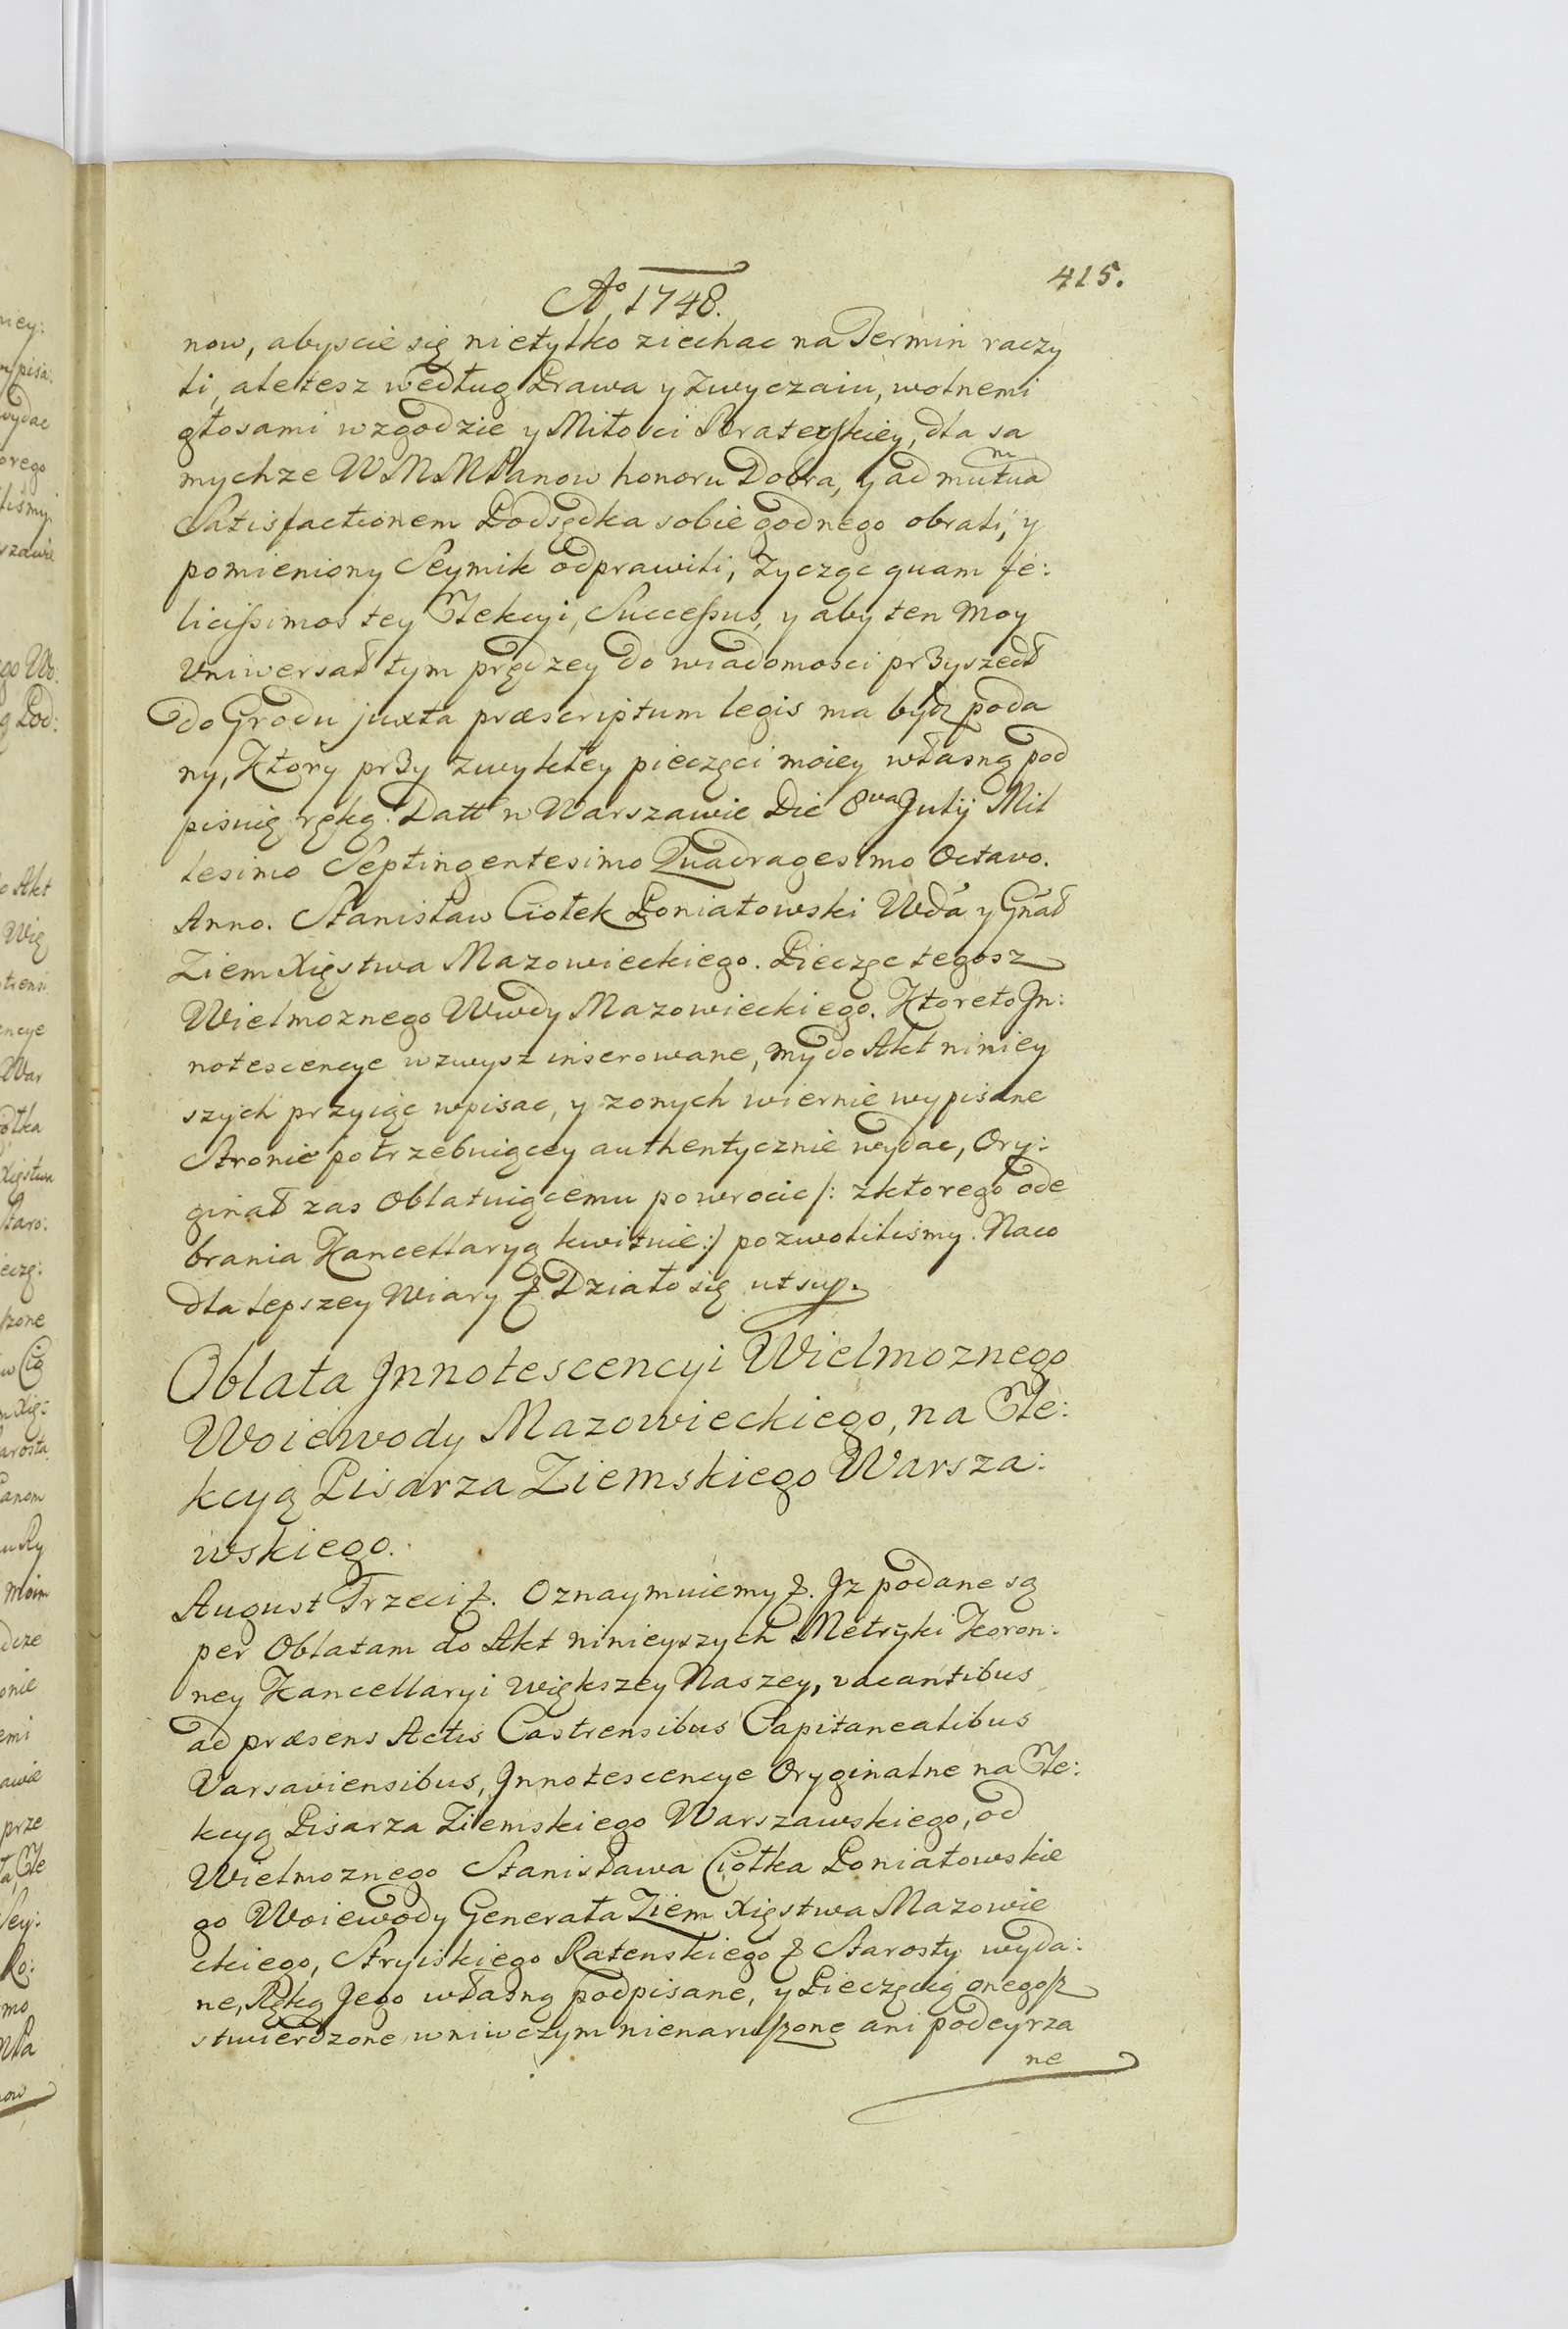 415.
Aº 1748.
now, abyscie się nietylko ziechac na Termin raczy
li, aletesz według Prawa y Zwyczaiu, wolnemi
głosami wzgodzie y Miłosci Braterskiey, dla sa
mychze WMM Panow honoru Dobra, y ad mutuam
Satisfactionem Podsędka sobie godnego obrali, y
pomieniony Seymik odprawili, Zycząc quam fe:
licissimos tey Elekcyi, Successus, y aby ten Moy
Vniwersał tym prędzey do wiadomosci przyszedł
do Grodu juxta præscriptum legis ma bydz poda
ny, Ktory przy Zwykłey pieczęci moiey własną pod
pisuię ręką. Datt w Warszawie Die 8va Julij Mil
lesimo Septingentesimo Quadragesimo Octavo.
Anno. Stanisław Ciołek Poniatowski Wda y Gnał
Ziem Xięstwa Mazowieckiego. Pieczęc tegosz
Wielmoznego Wwdy Mazowieckiego. Ktoreto In:
notescencye wzwysz inserowane, my do Akt niniey
szych przyiąc wpisac, y zonych wiernie wypisane
Stronie potrzebuiącey authentycznie wydac, Ory:
ginał zas Oblatuiącemu powrocic /: zktorego ode
brania Kancellaryą kwituie :/ pozwolilismy. Naco
dla lepszey Wiary & Działo się ut sup.
Oblata Innotescencyi Wielmoznego
Woiewody Mazowieckiego, na Ele:
kcyą Pisarza Ziemskiego Warsza:
wskiego.
August Trzeci &. Oznaymuiemy &. Iz podane są
per Oblatam do Akt ninieyszych Metryki Koron:
ney Kancellaryi Większey Naszey, vacantibus
ad præsens Actis Castrensibus Capitanealibus
Varsaviensibus, Innotescencye Oryginalne na Ele:
kcyą Pisarza Ziemskiego Warszawskiego, od
Wielmoznego Stanisława Ciołka Poniatowskie
go Woiewody Generała Ziem Xięstwa Mazowie
ckiego, Stryiskiego Ratenskiego & Starosty wyda:
ne, Ręką Jego własną podpisane, y Pieczęcią onegosz
stwierdzone, wniwczym nienaruszone ani podeyrza
ne